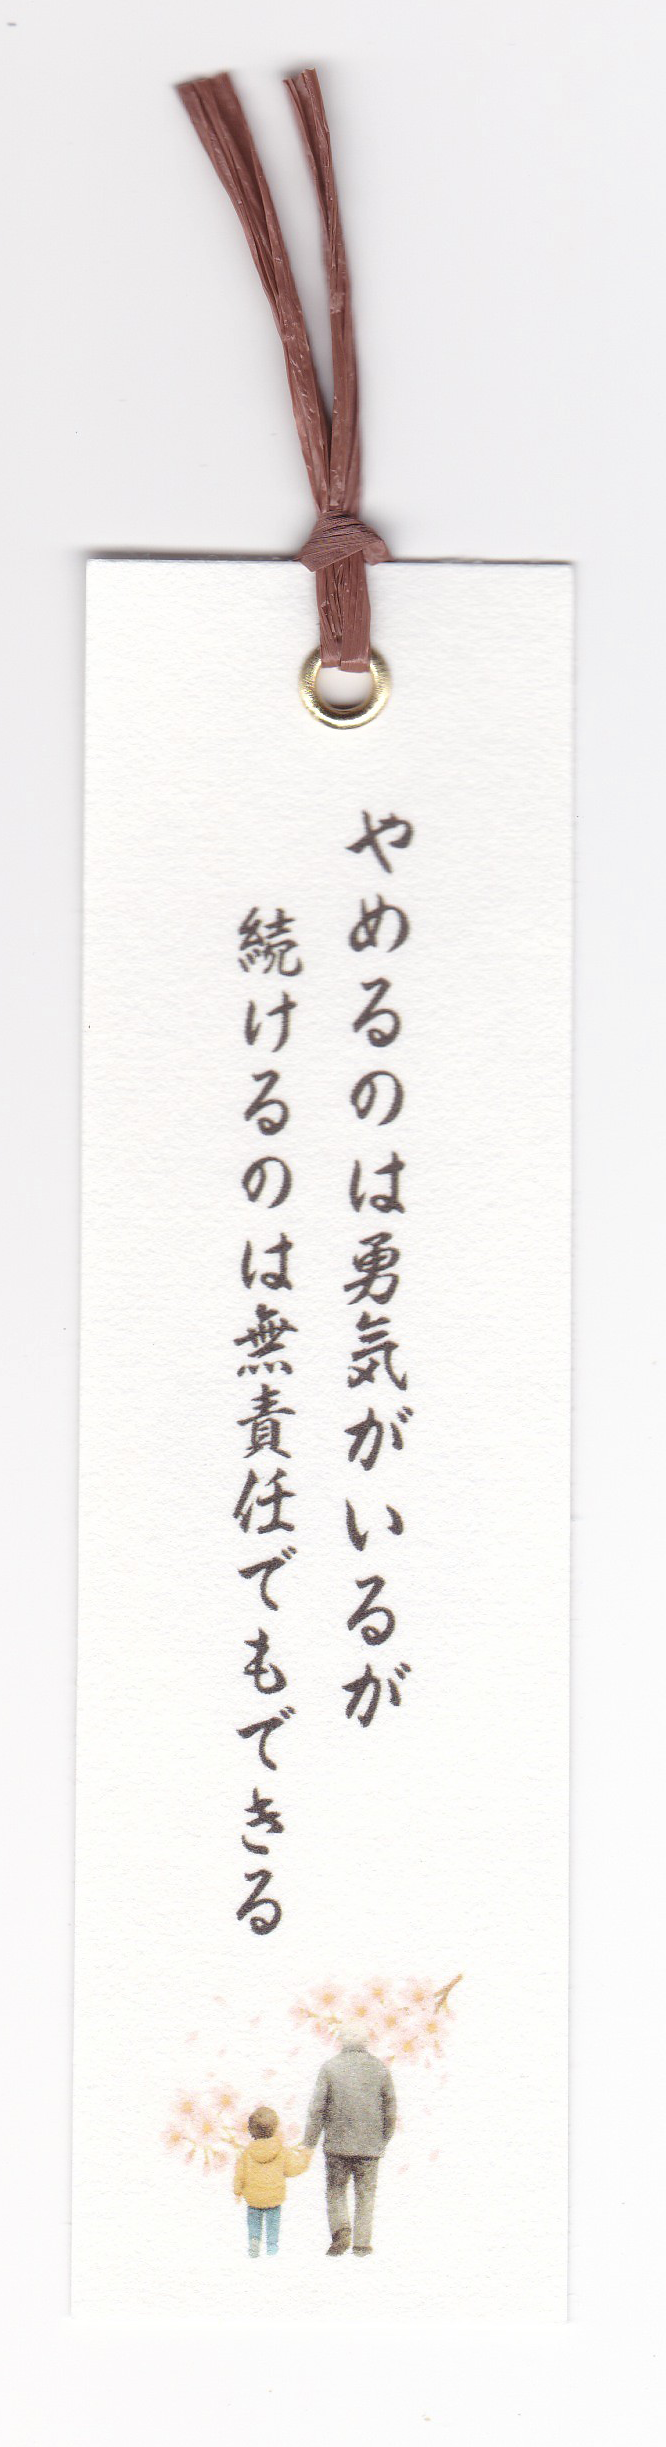 やめるのは勇気がいるが
続けるのは無責任でもできる